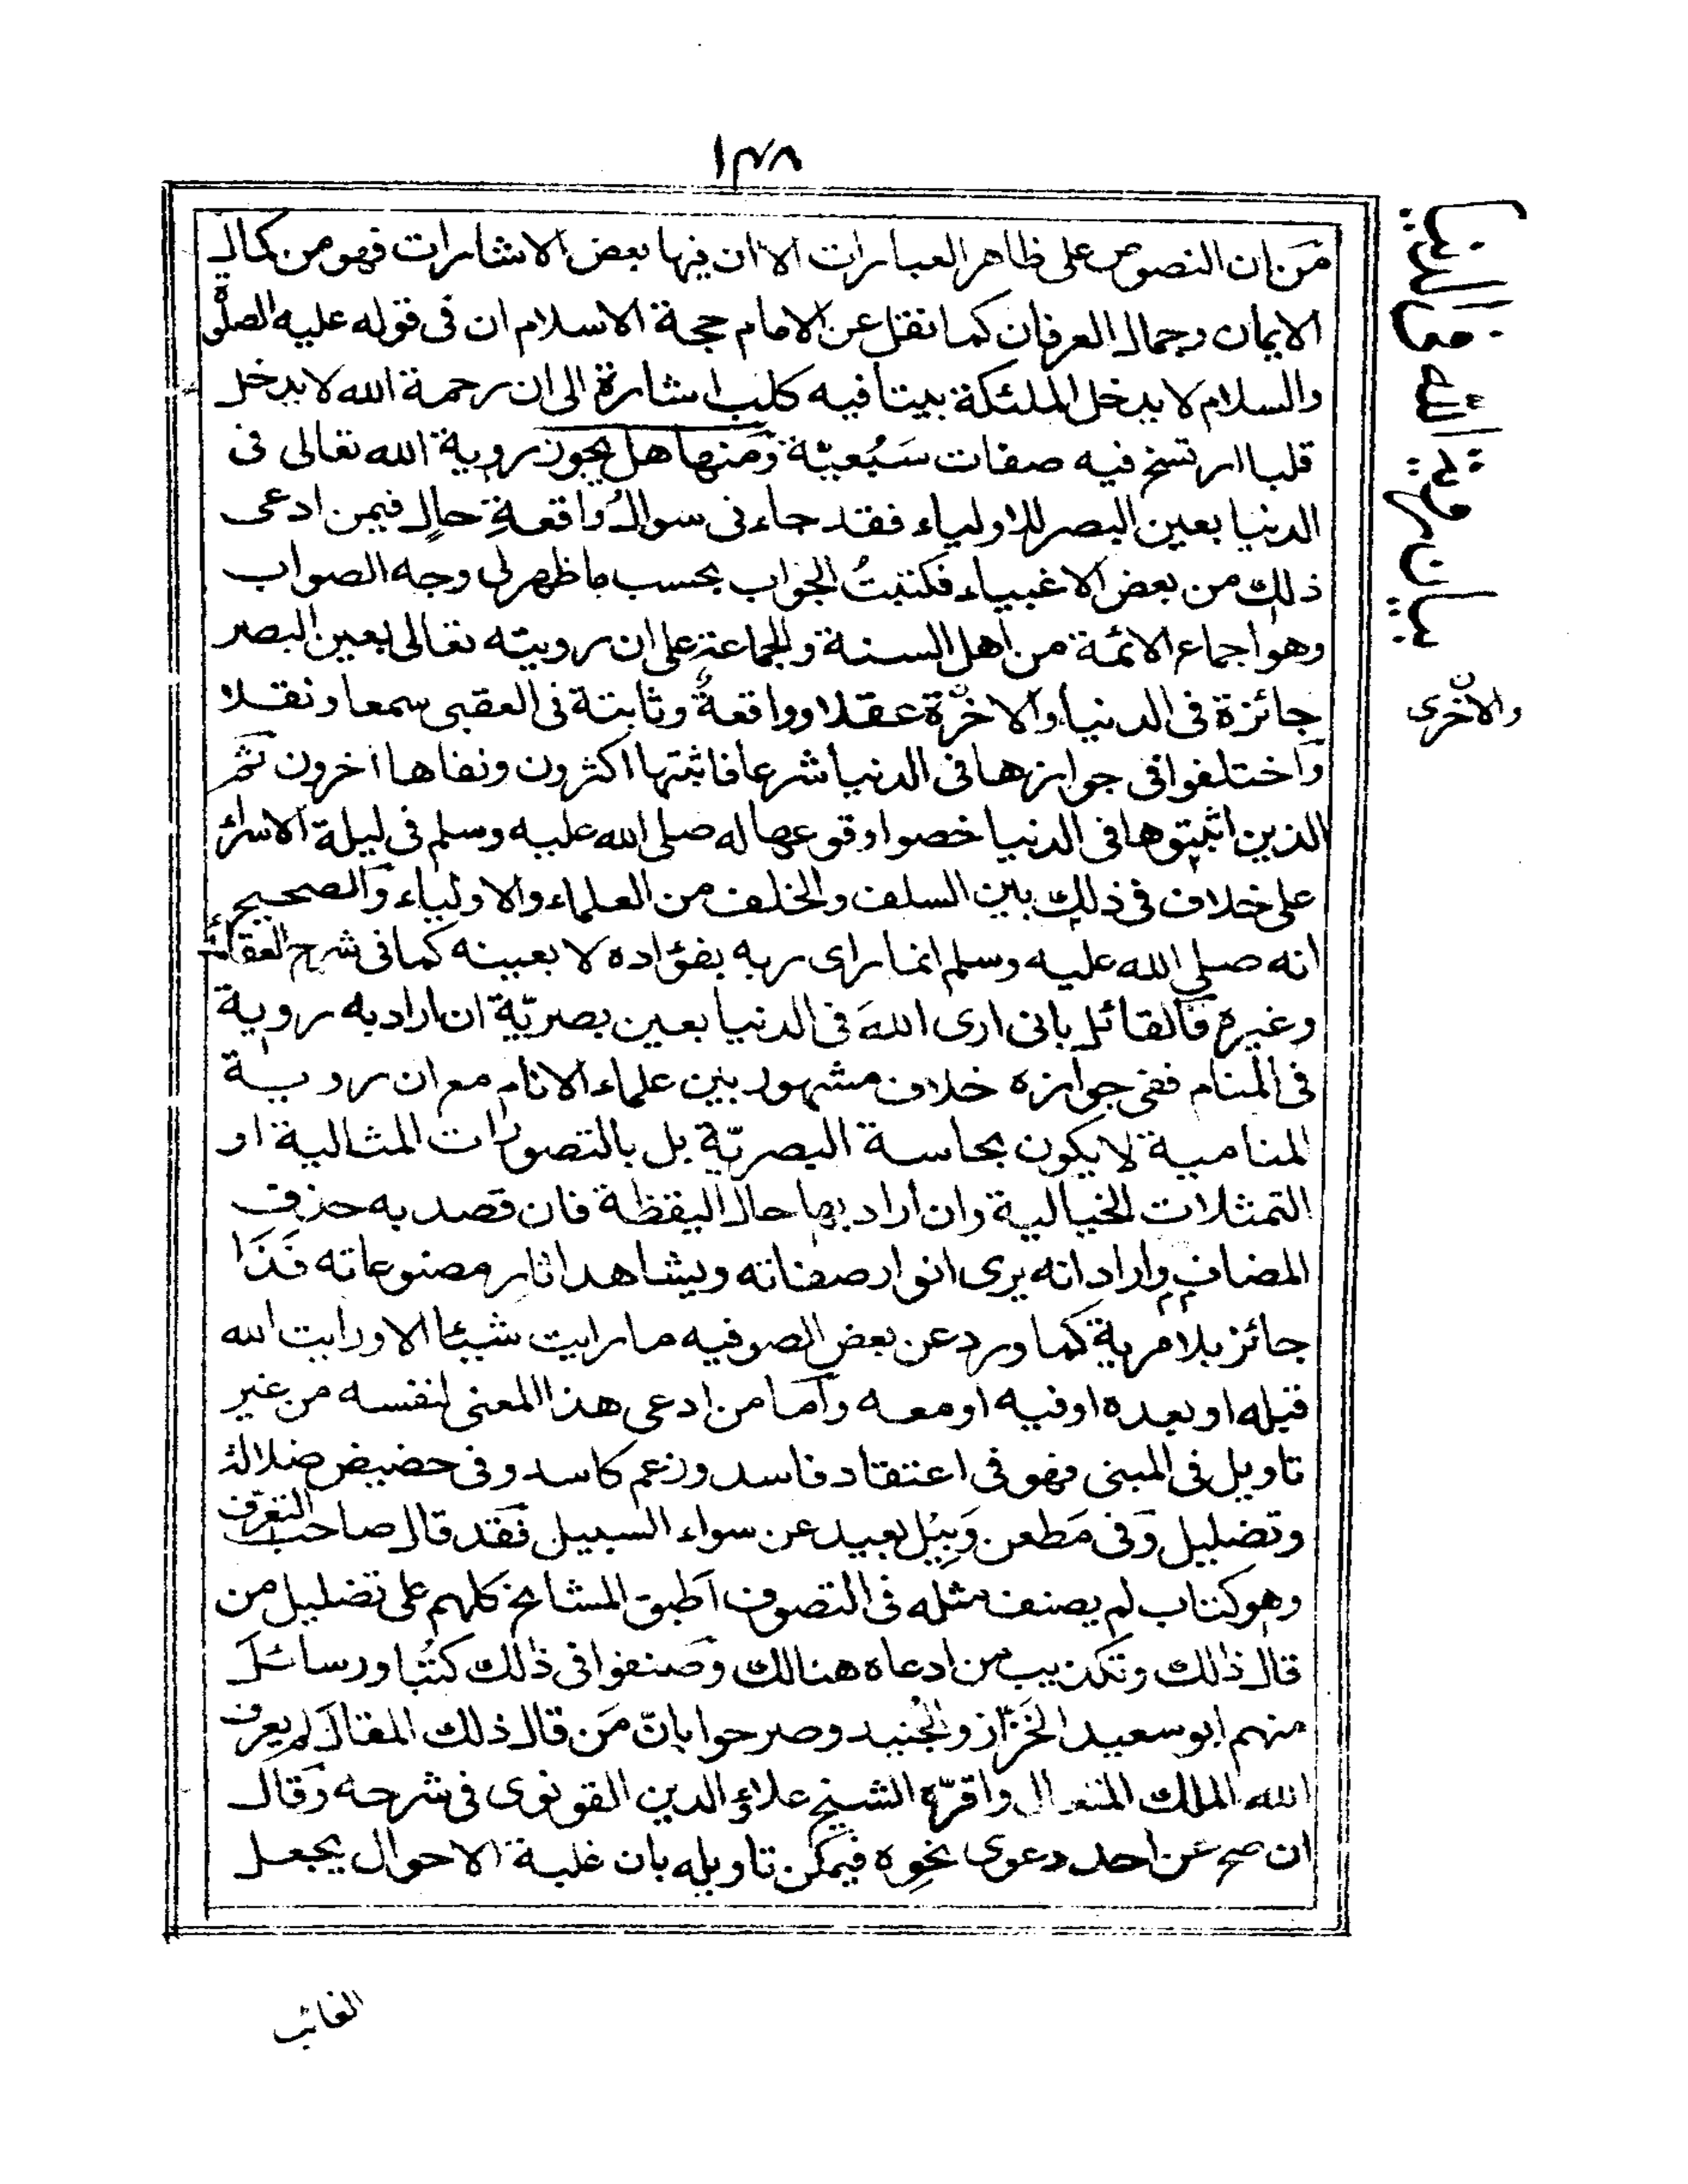 ١٤٨
من ان النصوص على ظاهر العبارات الا ان فيها بعض الاشارات فهو من كمال
الايمان وجمال العرفان كما نقل عن الامام حجة الاسلام ان فى قوله عليه الصلوة
والسلام لا يدخل الملئكة بيتا فيه كلب اشارة الى ان رحمة الله لا يدخل
قلبا ارتسخ فيه صفات سَبُعيّة ومنها هل يجوز روية الله تعالى فى
الدنيا بعين البصر للاولياء فقد جاءنى سوالُ واقعةِ حالٍ فيمن ادعى
ذلك من بعض الاغبياء فكتبتُ الجواب بحسب ما ظهر لى وجه الصواب
وهو اجماع الائمة من اهل السنة والجماعة على ان رويته تعالى بعين البصر
جائزة فى الدنيا والاخرة عقلا وواقعةٌ وثابتة فى العقبى سمعا ونقلا
واختلفوا فى جوازها فى الدنيا شرعا فاثبتها اكثرون ونفاها اخرون ثم
الذين اثبتوها فى الدنيا خصوا وقوعها له صلى الله عليه وسلم فى ليلة الاسراء
على خلاف فى ذلك بين السلف والخلف من العلماء والاولياء والصحيح
انه صلى الله عليه وسلم انما راى ربه بفؤاده لا بعينه كما فى شرح العقائد
وغيره فالقائل بانى ارى اللهَ فى الدنيا بعين بصريّة ان اراد به روية
فى المنام ففى جوازه خلاف مشهور بين علماء الانام مع ان روية
المنامية لا يكون بحاسة البصريّة بل بالتصورات المثالية او
التمثلات الخيالية وان اراد بها حال اليقظة فان قصد به حذف
المضاف واراد انه يرى انوار صفاته ويشاهد اثار مصنوعاته فَذَا
جائز بلا مرية كما ورد عن بعض الصوفيه ما رايت شيئا الا ورايت الله
قبله او بعده او فيه او معه واما من ادعى هذا المعنى لنفسه من غير
تاويل فى المبنى فهو فى اعتقاد فاسد وزعم كاسد وفى حضيض ضلالة
وتضليل وفى مَطعن وَبِيْل بعيد عن سواء السبيل فقد قال صاحب التعرّف
وهو كتاب لم يصنف مثله فى التصوف اطبق المشائخ كلهم على تضليل من
قال ذلك وتكذيب من ادعاه هنالك وصنفوا فى ذلك كتُبا ورسائلَ
منهم ابو سعيد الخَزّاز والجُنيد وصرحوا بانّ مَن قال ذلك المقال لم يعرف
الله الملك المتعال واقرّه الشيخ علاؤ الدين القونوى فى شرحه وقال
ان صح عن احد دعوى نحوه فيمكن تاويله بان غلبة الاحوال يجعل
بيان روية الله فى الدنيا
والاخرى
الغائب